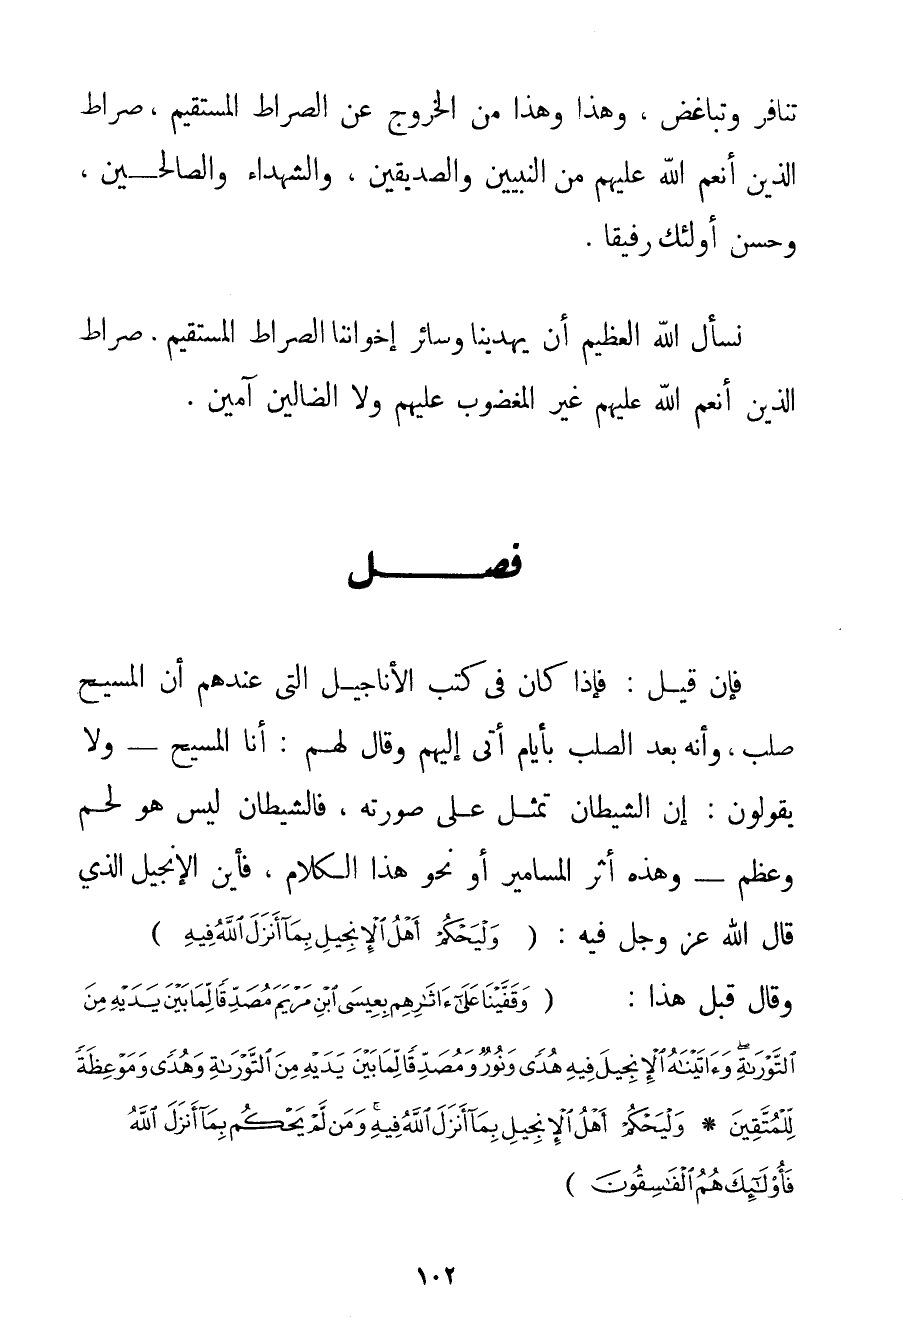 تنافر وتباغض ، وهذا وهذا من الخروج عن الصراط المستقيم ، صراط
الذين أنعم الله عليهم من النبيين والصديقين ، والشهداء والصالحـــين ،
وحسن أولئك رفيقا .
نسأل الله العظيم أن يهدينا وسائر إخواننا الصراط المستقيم . صراط
الذين أنعم الله عليهم غير المغضوب عليهم ولا الضالين آمين .
فصــــــــل
فإن قيـل : فإذا كان فى كتب الأناجيـل التى عندهم أن المسيح
صلب ، وأنه بعد الصلب بأيام أتى إليهم وقال لهـم : أنا المسيح ــ ولا
يقولون : إن الشيطان تمثـل علـى صورته ، فالشيطان ليس هو لحـم
وعظم ــ وهذه أثر المسامير أو نحو هذا الـكلام ، فأين الإنجيل الذي
قال الله عز وجل فيه : ( وَلْيَحْكُمْ أَهْلُ ٱلْإِنجِيلِ بِمَآ أَنزَلَ ٱللَّهُ فِيهِ )
وقال قبل هذا : ( وَقَفَّيْنَا عَلَىٰٓ ءَاثَٰرِهِم بِعِيسَى ٱبْنِ مَرْيَمَ مُصَدِّقًا لِّمَا بَيْنَ يَدَيْهِ مِنَ
ٱلتَّوْرَىٰةِۖ وَءَاتَيْنَٰهُ ٱلْإِنجِيلَ فِيهِ هُدًى وَنُورٌ وَمُصَدِّقًا لِّمَا بَيْنَ يَدَيْهِ مِنَ ٱلتَّوْرَىٰةِ وَهُدًى وَمَوْعِظَةً
لِّلْمُتَّقِينَ * وَلْيَحْكُمْ أَهْلُ ٱلْإِنجِيلِ بِمَآ أَنزَلَ ٱللَّهُ فِيهِۚ وَمَن لَّمْ يَحْكُم بِمَآ أَنزَلَ ٱللَّهُ
فَأُو۟لَٰٓئِكَ هُمُ ٱلْفَٰسِقُونَ )
١٠٢